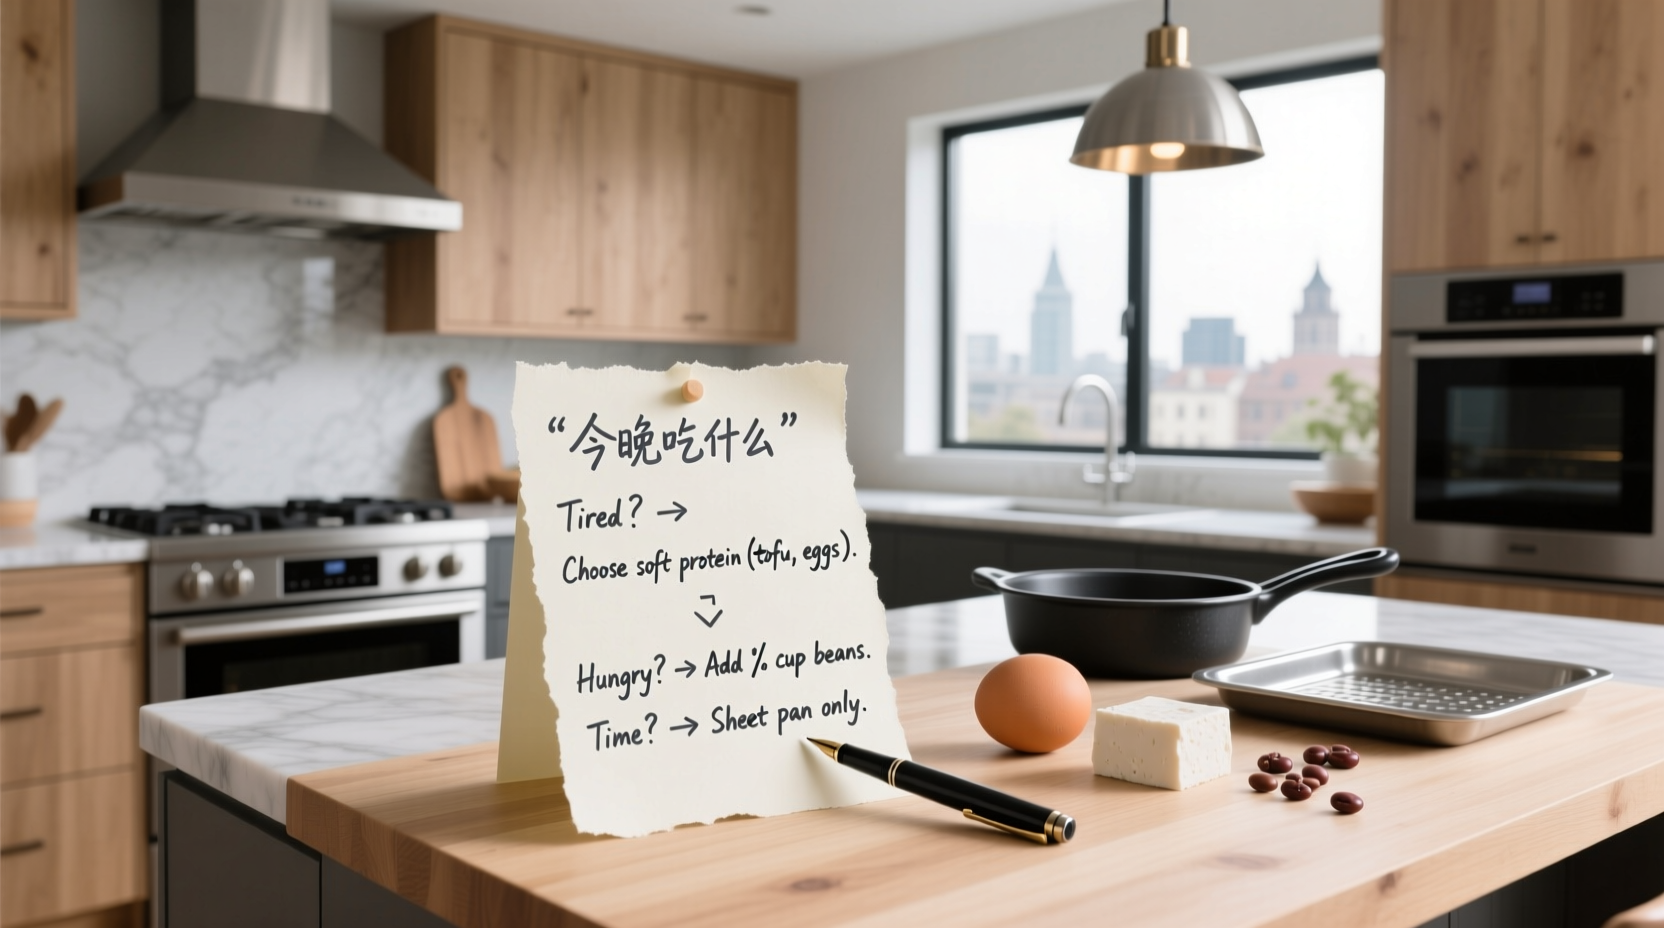 “今晚吃什么”
Tired? →
Choose soft protein (tofu, eggs).
Hungry? → Add % cup beans.
Time? → Sheet pan only.